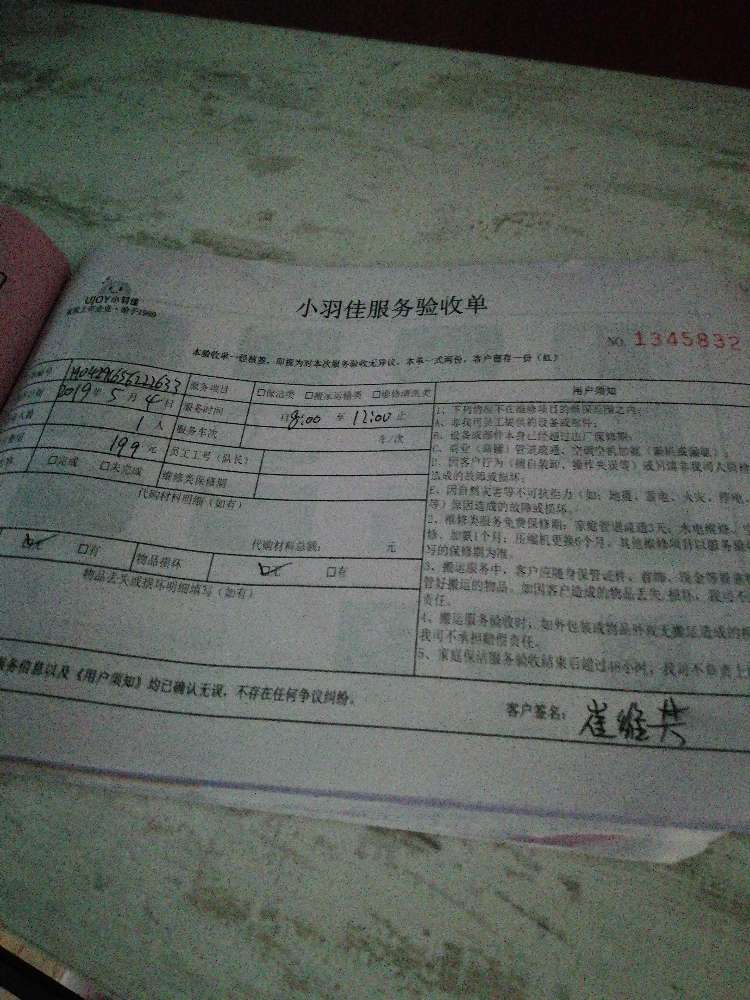 UJOY小羽佳
小羽佳服务验收单
NO. 1345832
本验收单一经核签，即视为对本次服务验收无异议，本单一式两份，客户留存一份（红）
服务项目： □保洁类 □搬家运输类 □维修清洗类
用户须知
2019年5月4日 服务时间 自9:00 至 12:00 止
1人 服务车次 车/次
199元 员工工号（队长）
□完成 □未完成 维修类保修期
代购材料明细（如有）
代购材料总额： 元
□无 □有 物品损坏 □无 □有
物品丢失或损坏明细填写（如有）
1、下列情况不在维修项目的维保范围之内：
A、非我司员工提供的设备或部件；
B、设备或部件本身已经超过出厂保修期；
D、因客户行为（擅自装卸、操作失误等）或另请非我司人员
造成的故障或损坏；
E、因自然灾害等不可抗拒力（如：地震、雷电、火灾、停电
等）原因造成的故障或损坏。
2、维修类服务免费保修期：家庭管道疏通3天，水电维修、
修、加氨1个月；压缩机更换6个月。其他维修项目以服务验
写的保修期为准。
3、搬运服务中，客户应随身保管证件、首饰、现金等贵重
管好搬运的物品。如因客户造成的物品丢失/损坏，我司不
责任。
4、搬运服务验收时，如外包装或物品外观无搬运造成的
我司不承担赔偿责任。
5、家庭保洁服务验收结束后超过48小时，我司不负责上
务信息以及《用户须知》均已确认无误，不存在任何争议纠纷。
客户签名： 崔维共